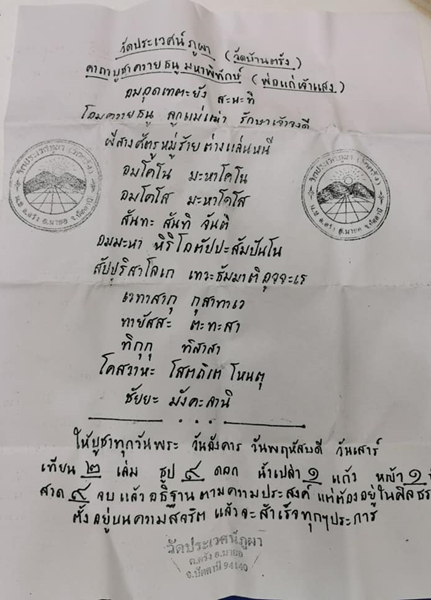 วัดประเวศน์ภูผา (วัดบ้านตรัง)
คาถาบูชาควายธนู มหาพิทักษ์ (พ่อแก่เจ้าแสง)
อมอุดเทตะยัง สะนะทิ
โอมควายธนู ลูกแม่เฒ่า รักษาเจ้าจงดี
ผีสางศัตรูหมู่ร้าย ต่างแล่นหนี
อมโคโน มะหาโคโน
อมโคโส มะหาโคโส
สันทะ สันทิ จันติ
อมมะหา หิริโอตัปปะสัมปันโน
สัปปุริสาโลเก เทวะธัมมาติวุจจะเร
เวทาสากุ กุสาทาเว
ทายัสสะ ตะทะสา
ทิกุกู ทิสาสา
โคสวาหะ โสตถิเต โหนตุ
ชัยยะ มังคะลานิ
ให้บูชาทุกวันพระ วันอังคาร วันพฤหัสบดี วันเสาร์
เทียน ๒ เล่ม ธูป ๙ ดอก น้ำเปล่า ๑ แก้ว หญ้า ๑
สวด ๙ จบ แล้วอธิฐานตามความประสงค์ แต่ต้องอยู่ในศิลธร
ตั้งอยู่บนความสุจริต แล้วจะสำเร็จทุกๆประการ
วัดประเวศน์ภูผา
ต.ตรัง อ.มายอ
จ.ปัตตานี 94140